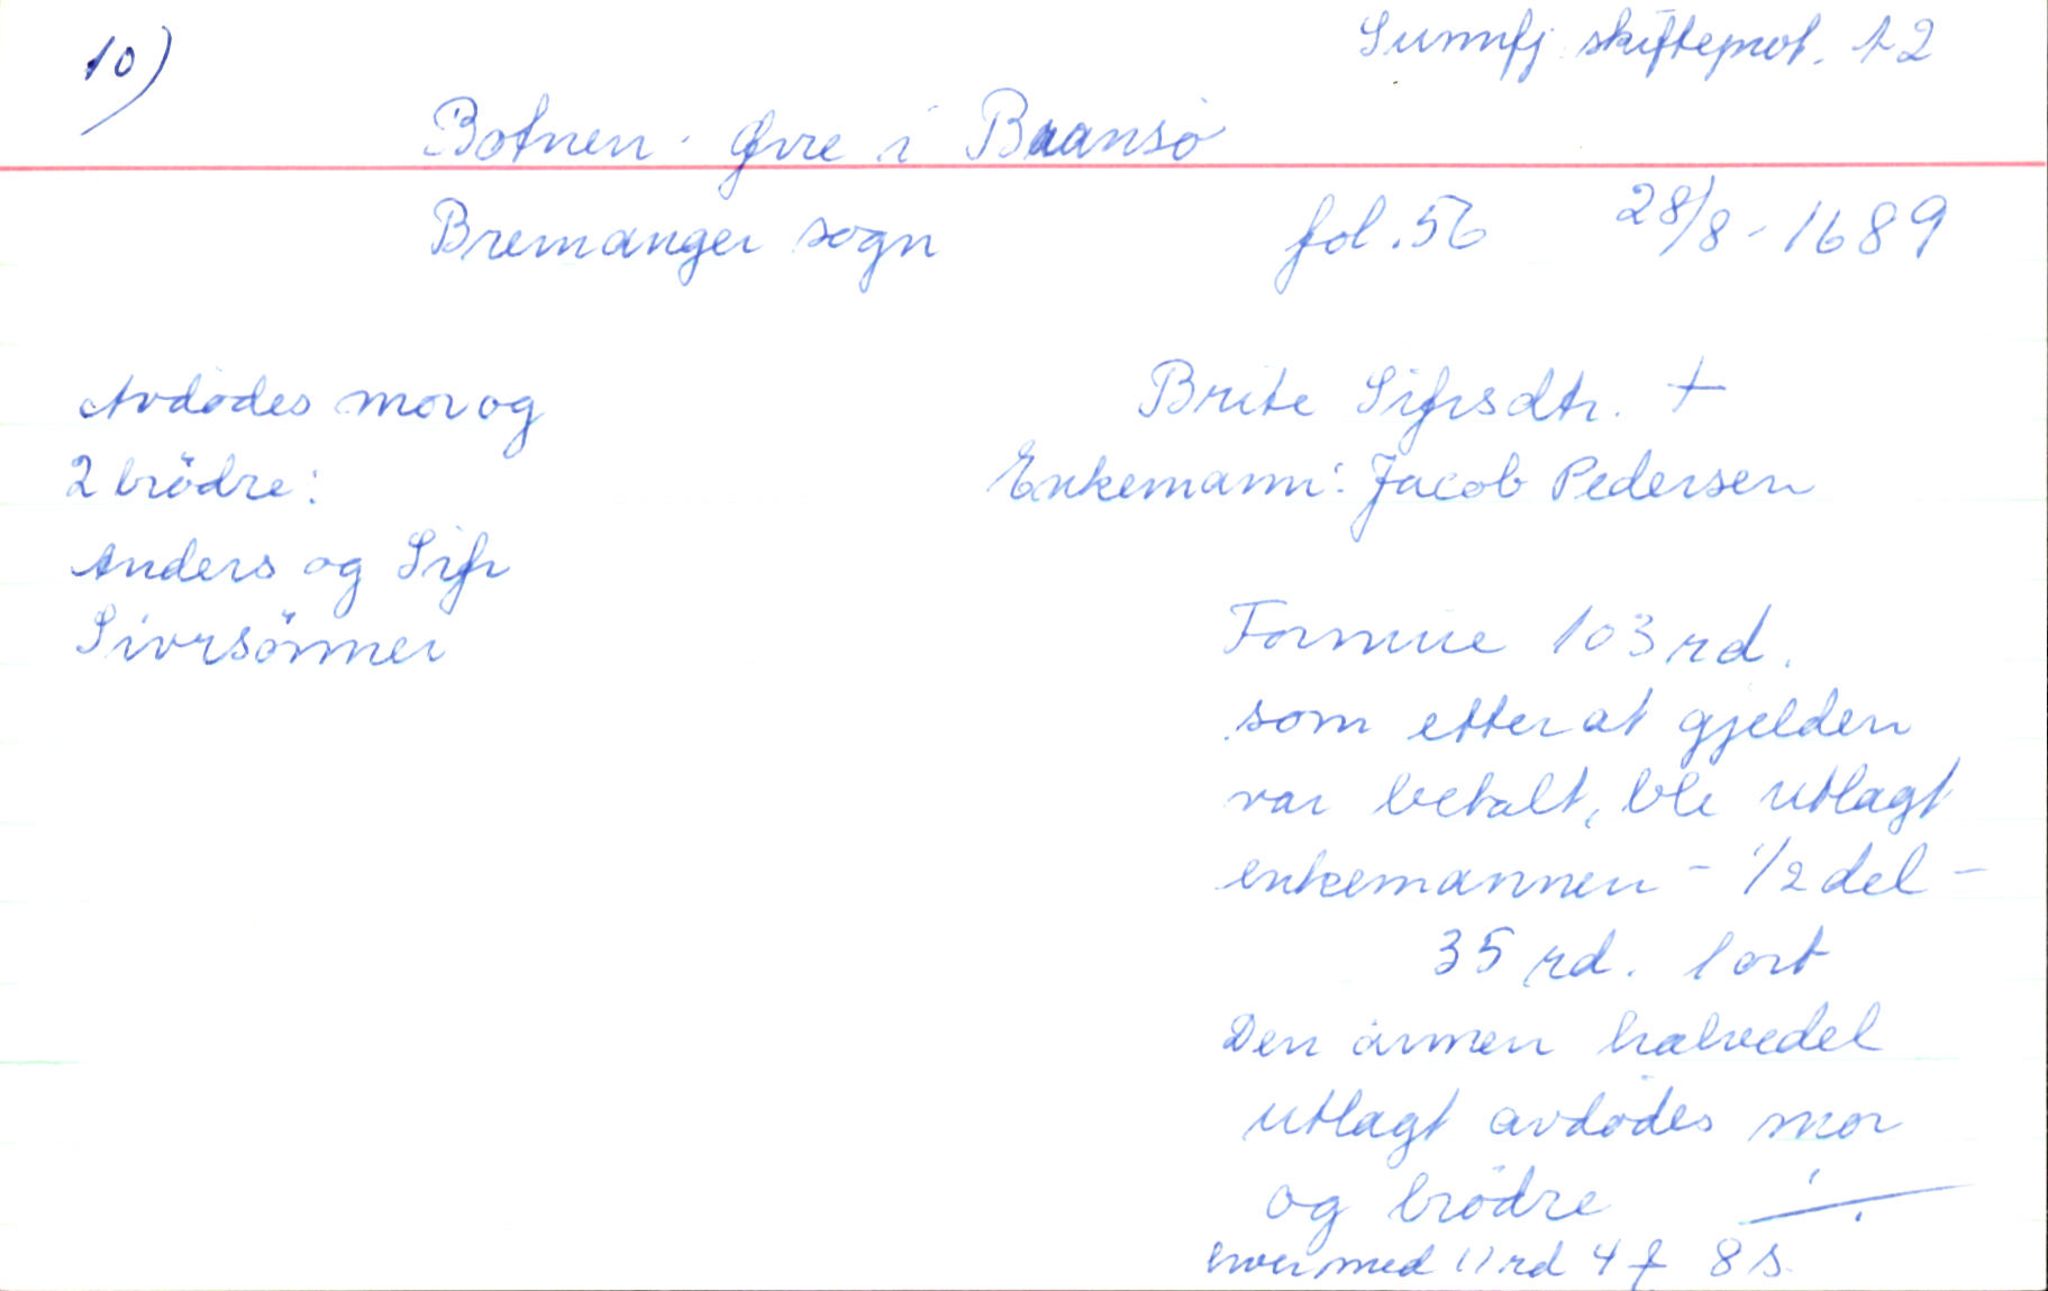 10)
Sunnfj skifteprot. 12
Botnen. Øvre i Bransö
Bremanger sogn fol. 56 28/8-1689
Avdödes mor og
2 brödre:
Anders og Sifr
Sivrsönner
Brite Sifrsdtr. +
Enkemann: Jacob Pedersen
Formue 103 rd.
som etter at gjelden
var betalt, ble utlagt
enkemannen - 1/2 del -
35 rd. 1 ort
Den annen halvedel
utlagt avdödes mor
og brödre
hver med 11 rd 4 ƒ 8 s.